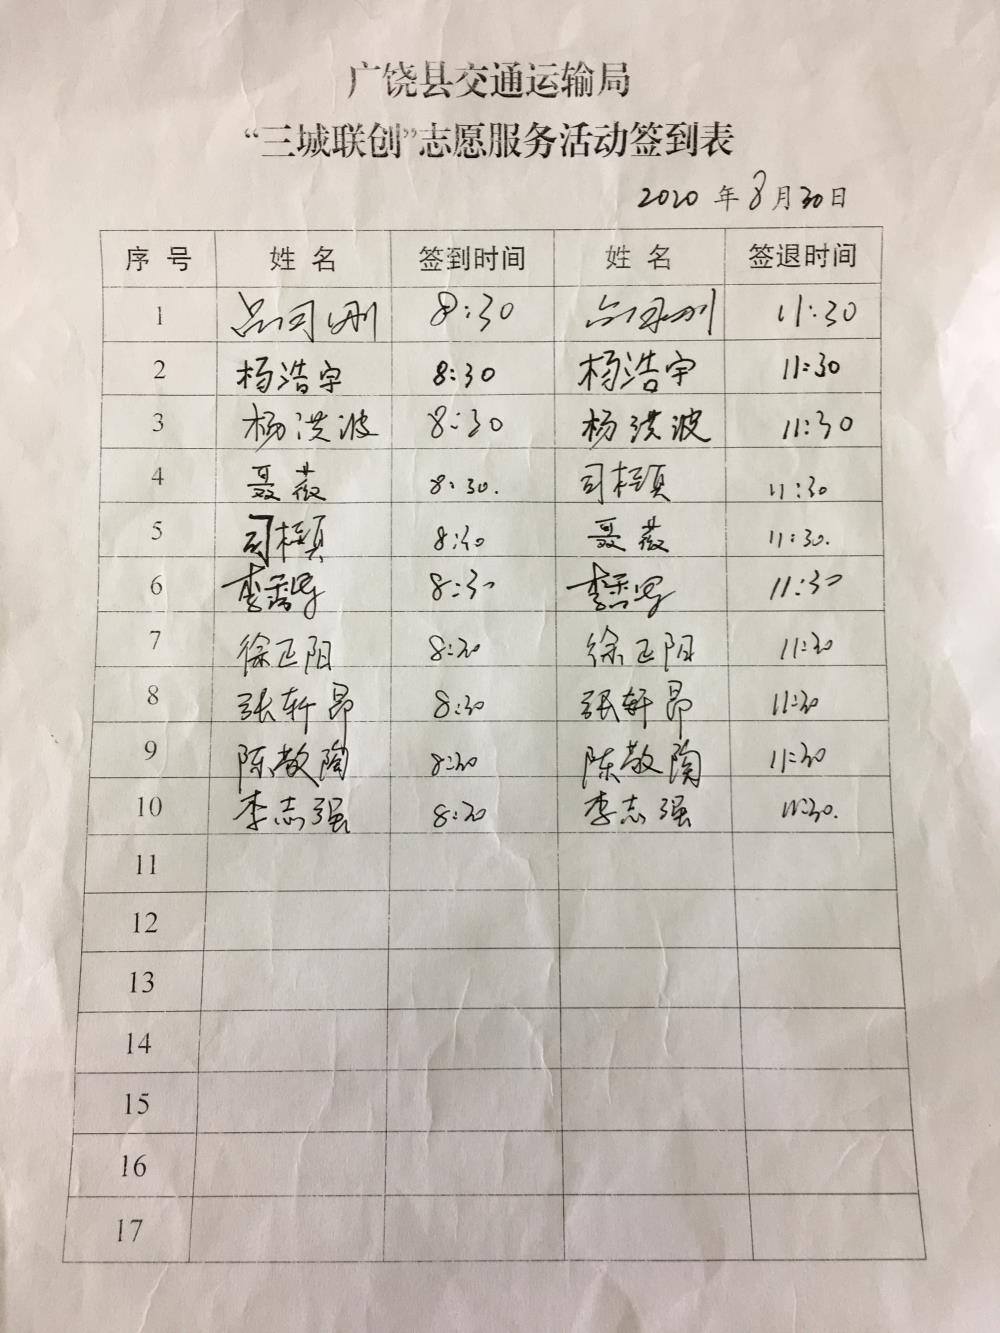 广饶县交通运输局
“三城联创”志愿服务活动签到表
2020 年 8 月 30 日
序 号 姓 名 签到时间 姓 名 签退时间
1 8:30 11:30
2 杨浩宇 8:30 杨浩宇 11:30
3 杨洪波 8:30 杨洪波 11:30
4 聂薇 8:30. 司桢颖 11:30
5 司桢颖 8:30 聂薇 11:30.
6 李 8:30 李 11:30
7 徐正阳 8:30 徐正阳 11:30
8 张轩昂 8:30 张轩昂 11:30
9 陈敬陶 8:30 陈敬陶 11:30
10 李志强 8:30 李志强 11:30.
11
12
13
14
15
16
17